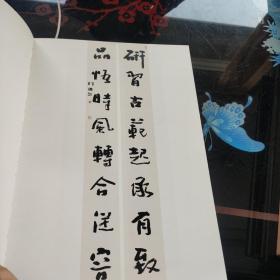 研習古範起承有致
品悟時風轉合從容